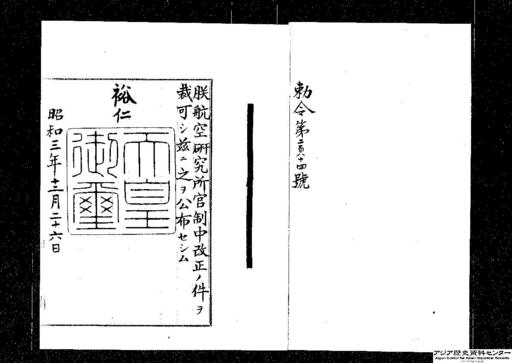 勅令第二百八十四號
朕航空研究所官制中改正ノ件ヲ
裁可シ茲ニ之ヲ公布セシム
裕仁
天皇
御璽
昭和三年十二月二十六日
アジア歴史資料センター
Japan Center for Asian Historical Records